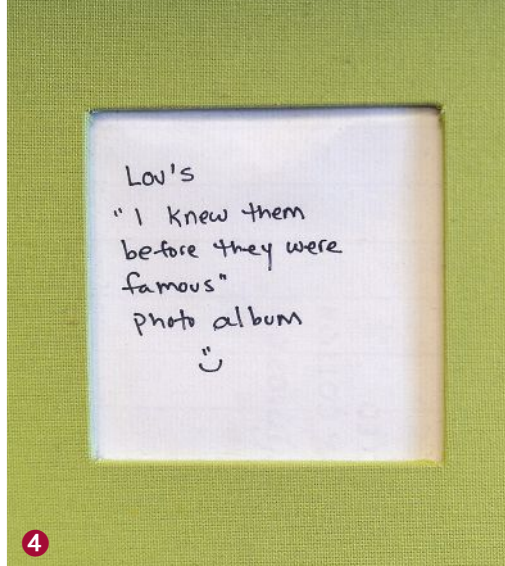 Lou's
"I knew them
before they were
famous"
photo album
4